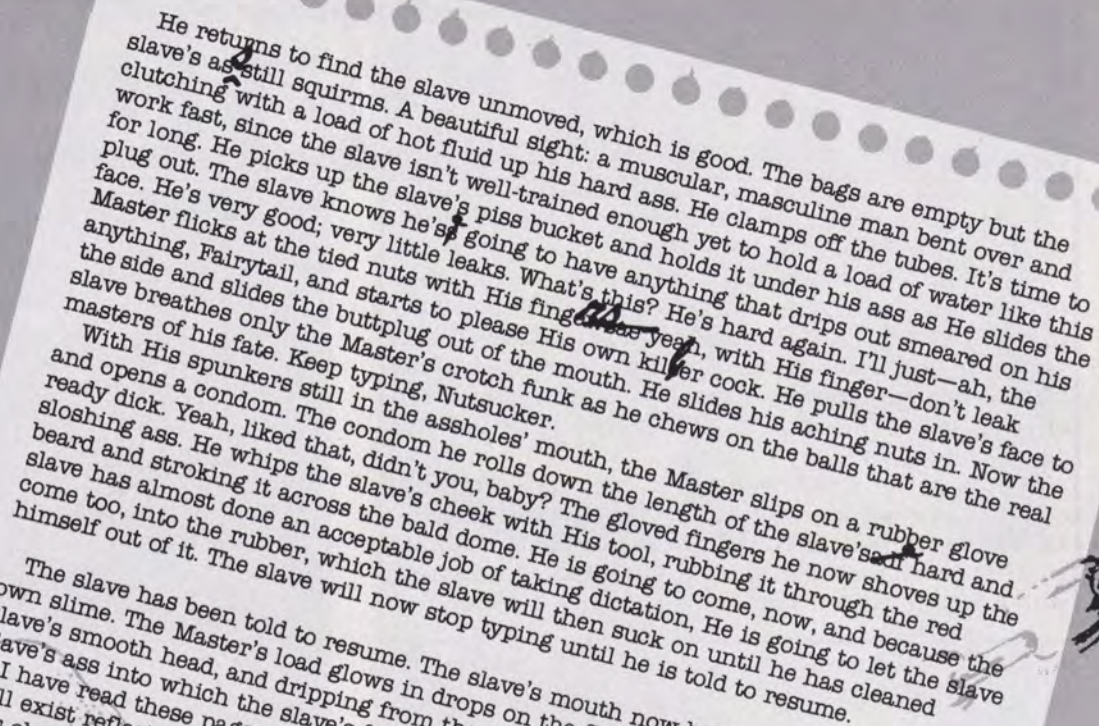 He returns to find the slave unmoved, which is good. The bags are empty but the
slave's ass still squirms. A beautiful sight: a muscular, masculine man bent over and
clutching with a load of hot fluid up his hard ass. He clamps off the tubes. It's time to
work fast, since the slave isn't well-trained enough yet to hold a load of water like this
for long. He picks up the slave's piss bucket and holds it under his ass as He slides the
plug out. The slave knows he's going to have anything that drips out smeared on his
face. He's very good; very little leaks. What's this? He's hard again. I'll just—ah, the
Master flicks at the tied nuts with His fing as yeah, with His finger—don't leak
anything, Fairytail, and starts to please His own killer cock. He pulls the slave's face to
the side and slides the buttplug out of the mouth. He slides his aching nuts in. Now the
slave breathes only the Master's crotch funk as he chews on the balls that are the real
masters of his fate. Keep typing, Nutsucker.
With His spunkers still in the assholes' mouth, the Master slips on a rubber glove
and opens a condom. The condom he rolls down the length of the slave's hard and
ready dick. Yeah, liked that, didn't you, baby? The gloved fingers he now shoves up the
sloshing ass. He whips the slave's cheek with His tool, rubbing it through the red
beard and stroking it across the bald dome. He is going to come, now, and because the
slave has almost done an acceptable job of taking dictation, He is going to let the slave
come too, into the rubber, which the slave will then suck on until he has cleaned
himself out of it. The slave will now stop typing until he is told to resume.
The slave has been told to resume. The slave's mouth now
own slime. The Master's load glows in drops on the
slave's smooth head, and dripping from
slave's ass into which the slave's
I have read these pages
exist